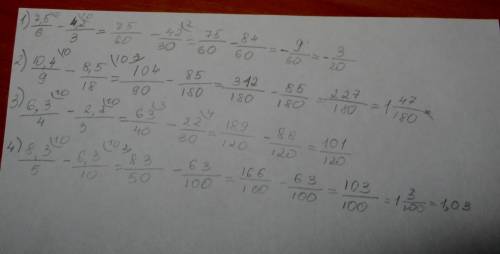 1) 7,5/6 - 4,2/3 \10 = 75/60 - 42/30 \2 = 75/60 - 84/60 = - 9/60 = - 3/20
2) 10,4/9 \10 - 8,5/18 \10 = 104/90 - 85/180 = 312/180 - 85/180 = 227/180 = 1 47/180
3) 6,3/4 \10 - 2,2/3 \10 = 63/40 \3 - 22/30 \4 = 189/120 - 88/120 = 101/120
4) 8,3/5 \10 - 6,3/10 \10 = 83/50 - 63/100 = 166/100 - 63/100 = 103/100 = 1 3/100 = 1,03